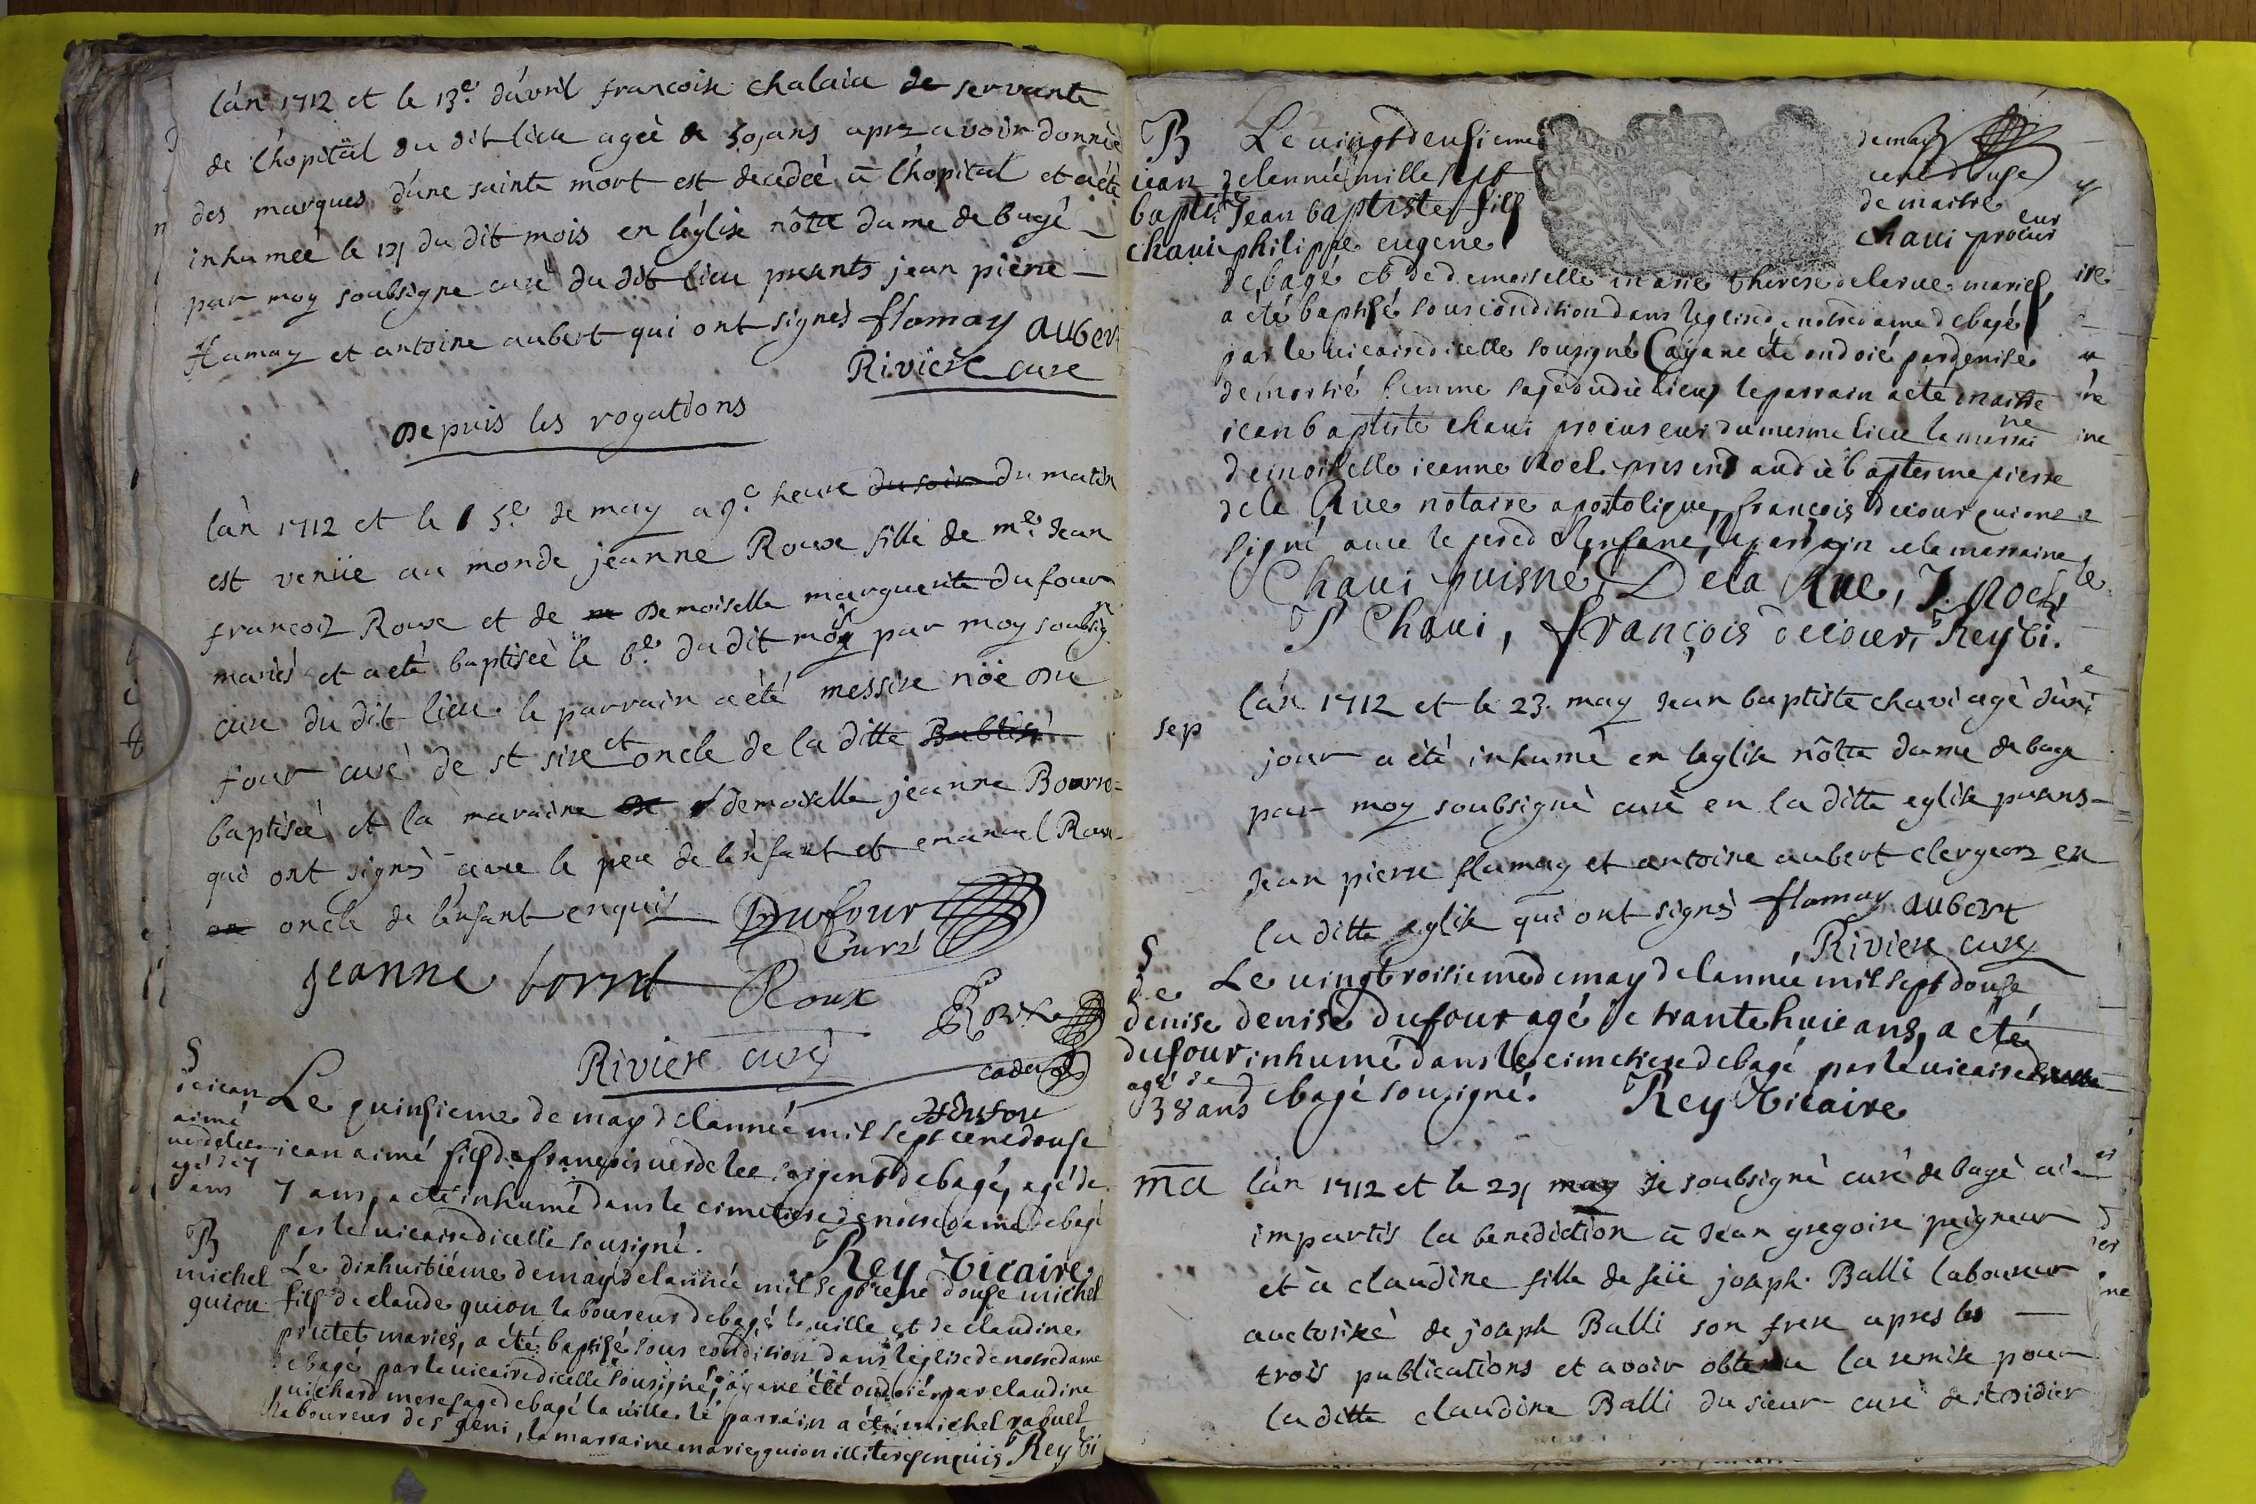 lán 1712 et le 13e. dávril francoise chalaia de servante
de lhopital du dit lieu agée de 50 ans aprz avoir donnée
des marques dúne sainte mort est decedeé a lhopital et a été
inhumeé le 14 du dit mois en léglise nôtre dame de bagé
par moy soubsigne curé du dit lieu pnts jean pierre
flamay et antoine aubert qui ont signés flamay aubert
Riviere cure
depuis les rogations
lán 1712 et le 5e. de may a 9e. heure du soir du matin
est venüe au monde jeanne Roux fille de me. Jean
francois Roux et de demoiselle marguerite dufour
mariés et a eté baptiseé le 6e. du dit moy par moy soubsigné
cure du dit lieu le parrain a été messire nöe du
four curé de st sire et oncle de la ditte
baptiseé et la maraine demoiselle jeanne Borro=
qui ont signés avec le pere de lénfant et emanuel Roux
oncle de lénfant enquis Dufour
Curé
jeanne borrot Roux
Roux
Riviere curé
cadet
Dufour
S
jean
aimé
verdelee
agé de 7
ans
Le quinsieme de may de lannée mil sept cent douse
jean aimé fils de francois verdelee sergent de bagé, agé de
7 ans, a été inhumé dans le cimetiere de notre dame de bagé
par le vicaire dicelle sousigné.
Rey Vicaire
B
michel
guion
Le dixhuitiéme de may de lannée mil sept cent douse michel
fils de claude guion laboureur de bagé la ville et de claudine
prutet mariés, a été baptisé sous condition dans léglise de notre dame
de bagé par le vicaire dicelle sousigné, ayant été ondoié par claudine
guichard mere sage de bagé la ville. le parrain a été michel rabuel
laboureur de st geni, la marraine marie guion illiterés enquis Rey Vi
B
jean
baptiste
chavi
Le vingt deusieme de may
de lannée mille sept cent douse
Jean baptiste fils de maitre
philippe eugene chavi procureur
de bagé et de demoiselle marie therese delarue mariés
a été baptisé sous condition dans léglise de notre dame de bagé
par le vicaire dicelle sousigné (ayant été ondoié par denise
demortié femme sage dudit lieu) le parrain a été maitre
jean baptiste chavi procureur du mesme lieu la marraine
demoiselle jeanne Noel. presents audit baptesme pierre
de la Rue notaire apostolique, françois decour qui ont
signé avec le pere de lenfant, le parrain et la marraine
Chavi puisné, Dela Rue, J. Noel,
P Chavi, françois decour, Rey Vi.
sep
lán 1712 et le 23. may Jean baptiste chavi agé dún
jour a été inhumé en léglise nôtre dame de bage
par moy soubsigné curé en la ditte eglise pnts
Jean pierre flamay et antoine aubert clergeons en
la ditte eglise qui ont signés flamay aubert
Riviere curé
S
de
denise
dufour
agé de
38 ans
Le vingt troisieme de may de lannée mil sept douse
denise dufour agé de trante huit ans, a été
inhumé dans le cimetiere de bagé par le vicaire
de bagé sousigné. Rey Vicaire
ma
lán 1712 et le 24 may Je soubsigné curé de bagé ai
impartis la benediction a Jean gregoire peigneur
et a claudine fille de feü joseph Balli laboureur
auctorisée de joseph Balli son frere apres les
trois publications et avoir obtenu la remise pour
la ditte claudine Balli du sieur curé de st didier